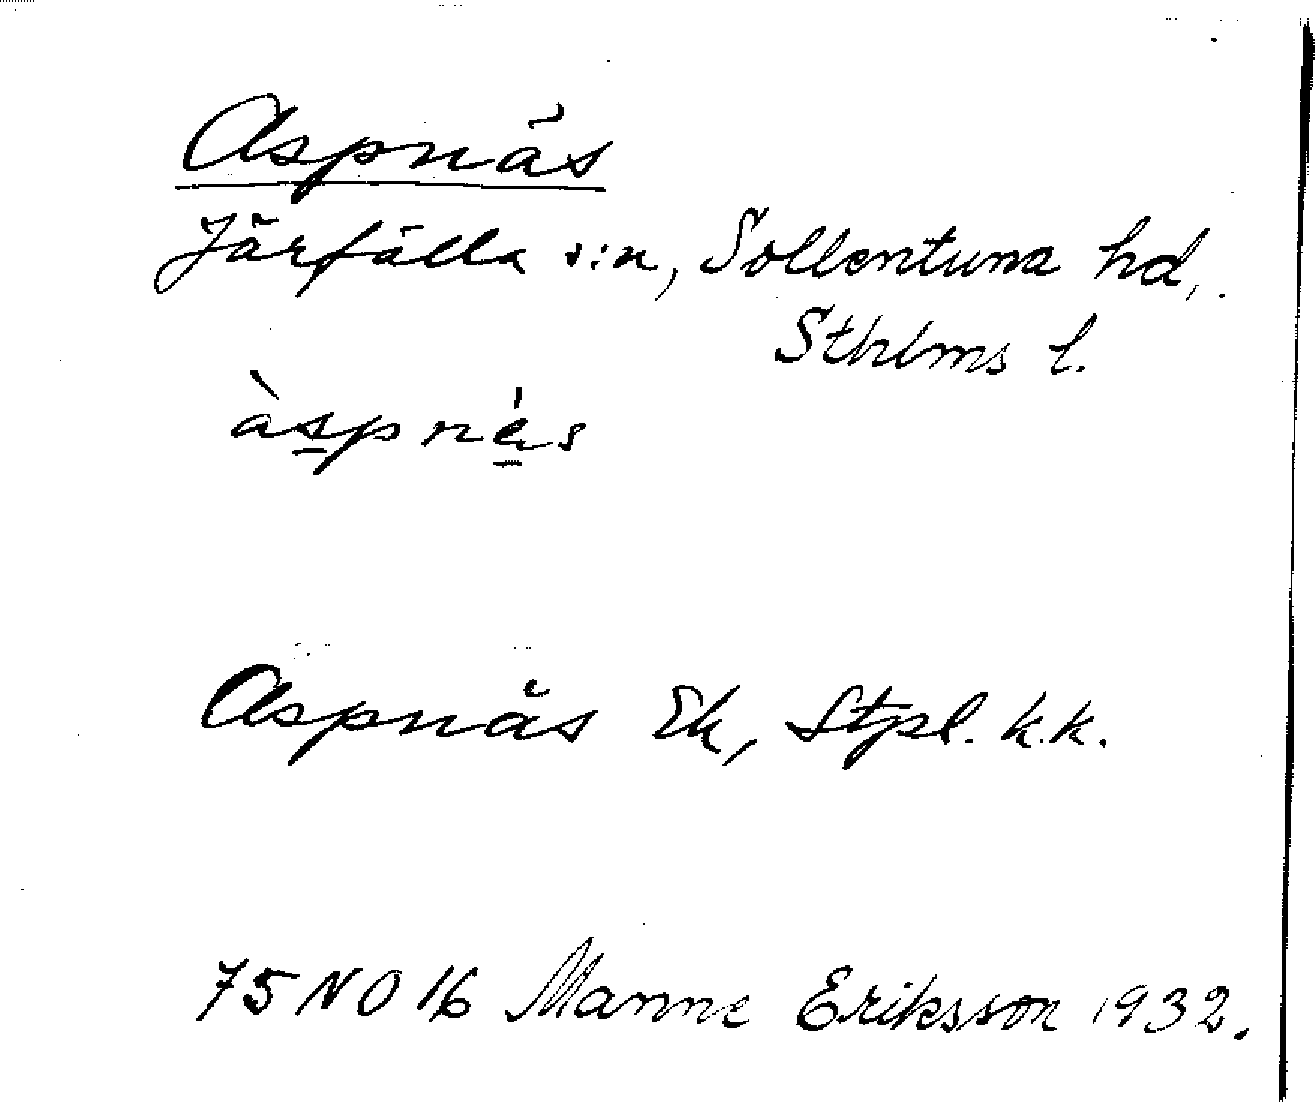 Aspnäs
Järfälla s:n, Sollentuna hd,
Sthlms l.
àspnés
Aspnäs Ek, Stpl. k.k.
75 NO 16 Manne Eriksson 1932.